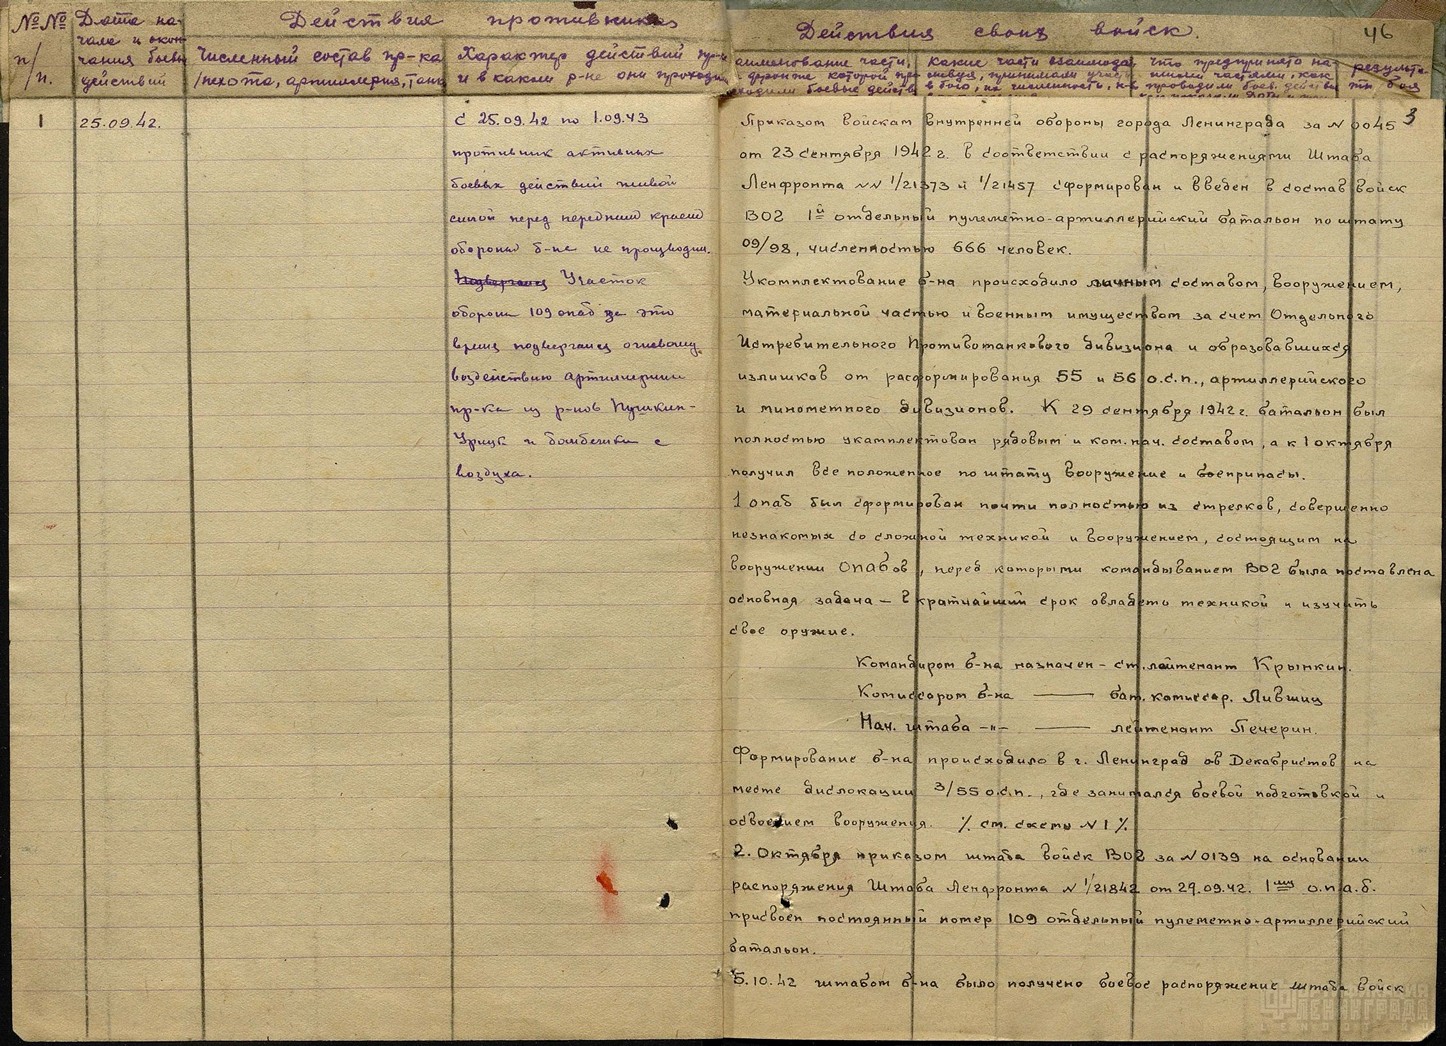 №№ п/п.
Дата начала и окончания боевых действий
Действия противника
Численный состав пр-ка /пехота, артиллерия, танк
Характер действий пр-ка и в каком р-не они проходили
Действия своих войск.
46
3
какие части взаимодей
что предпринято на-
результа
ты боя
1
25.09.42.
с 25.09.42 по 1.09.43
противник активных
боевых действий живой
силой перед передним краем
обороны б-на не производил.
Подвергался Участок
обороны 109 опаб за это
время подвергался огневому
воздействию артиллерии
пр-ка из р-нов Пушкин-
Урицк и бомбежки с
воздуха.
Приказом войскам внутренней обороны города Ленинграда за N 0045
от 23 сентября 1942 г. в соответствии с распоряжениями Штаба
Ленфронта NN 1/21373 и 1/21457 сформирован и введен в состав войск
ВОГ 1й отдельный пулеметно-артиллерийский батальон по штату
09/98, численностью 666 человек.
Укомплектование б-на происходило личным составом, вооружением,
материальной частью и военным имуществом за счет Отдельного
Истребительного Противотанкового дивизиона и образовавшихся
излишков от расформирования 55 и 56 о.с.п., артиллерийского
и минометного дивизионов. К 29 сентября 1942 г. батальон был
полностью укамплектован рядовым и ком.нач. составом, а к 1 октября
получил все положенное по штату вооружение и боеприпасы.
1 опаб был сформирован почти полностью из стрелков, совершенно
незнакомых со сложной техникой и вооружением, состоящим на
вооружении Опабов, перед которыми командыванием ВОГ была поставлена
основная задача — в кратчайший срок овладеть техникой и изучить
свое оружие.
Командиром б-на назначен — ст. лейтенант Крынкин.
Комиссаром б-на —— бат. комиссар. Лившиц
Нач. штаба -"- —— лейтенант Печерин.
Формирование б-на происходило в г. Ленинград ов Декабристов на
месте дислокации 3/55 о.с.п., где занимался боевой подготовкой и
освоением вооружения. ٪ см. схему N 1 ٪
2. Октября приказом штаба войск ВОГ за N 0139 на основании
распоряжения Штаба Ленфронта N 1/21842 от 29.09.42. 1му о.п.а.б.
присвоен постоянный номер 109 отдельный пулеметно-артиллерийский
батальон.
5.10.42 штабом б-на было получено боевое распоряжение штаба войск